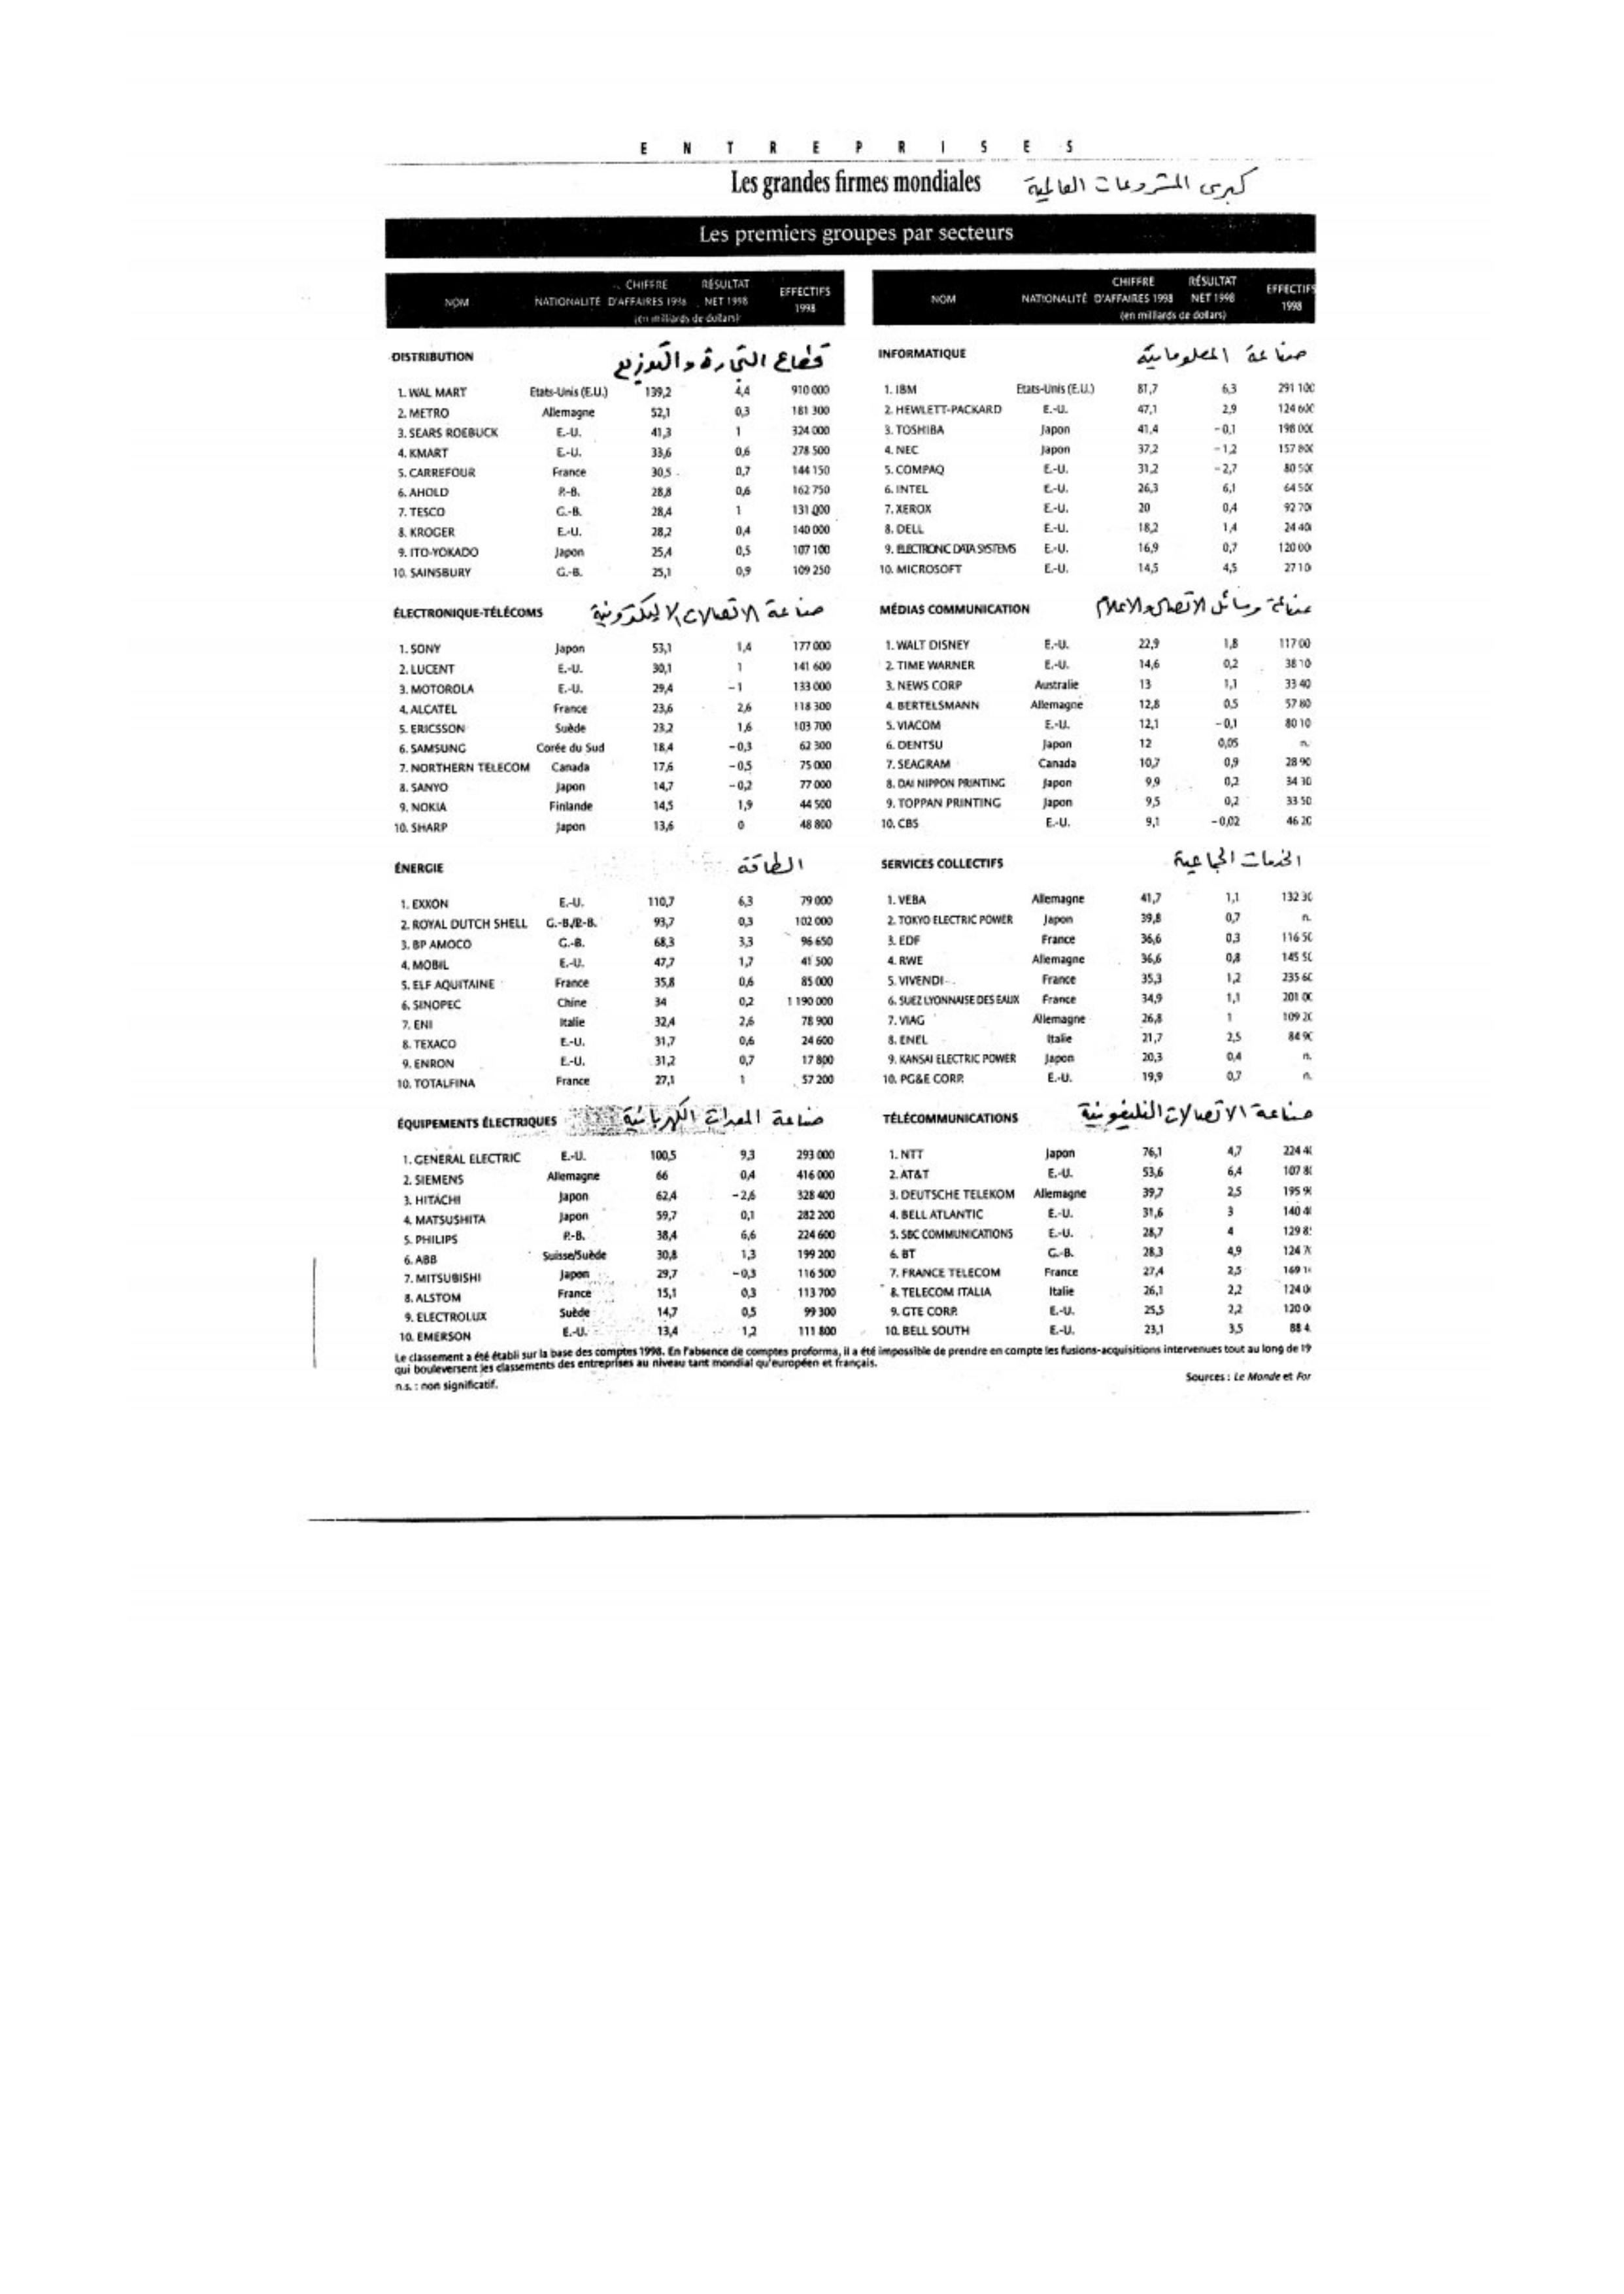 E N T R E P R I S E S
Les grandes firmes mondiales كبرى المشروعات العالمية
Les premiers groupes par secteurs
NOM NATIONALITÉ CHIFFRE D'AFFAIRES 1998 RÉSULTAT NET 1998 (en milliards de dollars) EFFECTIFS 1998
DISTRIBUTION قطاع التجارة والتوزيع
1. WAL MART Etats-Unis (E.U.) 139,2 4,4 910 000
2. METRO Allemagne 52,1 0,3 181 300
3. SEARS ROEBUCK E.-U. 41,3 1 324 000
4. KMART E.-U. 33,6 0,6 278 500
5. CARREFOUR France 30,5 0,7 144 150
6. AHOLD P.-B. 28,8 0,6 162 750
7. TESCO G.-B. 28,4 1 131 000
8. KROGER E.-U. 28,2 0,4 140 000
9. ITO-YOKADO Japon 25,4 0,5 107 100
10. SAINSBURY G.-B. 25,1 0,9 109 250
ÉLECTRONIQUE-TÉLÉCOMS صناعة الاتصالات الاليكترونية
1. SONY Japon 53,1 1,4 177 000
2. LUCENT E.-U. 30,1 1 141 600
3. MOTOROLA E.-U. 29,4 -1 133 000
4. ALCATEL France 23,6 2,6 118 300
5. ERICSSON Suède 23,2 1,6 103 700
6. SAMSUNG Corée du Sud 18,4 -0,3 62 300
7. NORTHERN TELECOM Canada 17,6 -0,5 75 000
8. SANYO Japon 14,7 -0,2 77 000
9. NOKIA Finlande 14,5 1,9 44 500
10. SHARP Japon 13,6 0 48 800
ÉNERGIE الطاقة
1. EXXON E.-U. 110,7 6,3 79 000
2. ROYAL DUTCH SHELL G.-B./P.-B. 93,7 0,3 102 000
3. BP AMOCO G.-B. 68,3 3,3 96 650
4. MOBIL E.-U. 47,7 1,7 41 500
5. ELF AQUITAINE France 35,8 0,6 85 000
6. SINOPEC Chine 34 0,2 1 190 000
7. ENI Italie 32,4 2,6 78 900
8. TEXACO E.-U. 31,7 0,6 24 600
9. ENRON E.-U. 31,2 0,7 17 800
10. TOTALFINA France 27,1 1 57 200
ÉQUIPEMENTS ÉLECTRIQUES صناعة المعدات الكهربائية
1. GENERAL ELECTRIC E.-U. 100,5 9,3 293 000
2. SIEMENS Allemagne 66 0,4 416 000
3. HITACHI Japon 62,4 -2,6 328 400
4. MATSUSHITA Japon 59,7 0,1 282 200
5. PHILIPS P.-B. 38,4 6,6 224 600
6. ABB Suisse/Suède 30,8 1,3 199 200
7. MITSUBISHI Japon 29,7 -0,3 116 500
8. ALSTOM France 15,1 0,3 113 700
9. ELECTROLUX Suède 14,7 0,5 99 300
10. EMERSON E.-U. 13,4 1,2 111 800
NOM NATIONALITÉ CHIFFRE D'AFFAIRES 1998 RÉSULTAT NET 1998 (en milliards de dollars) EFFECTIFS 1998
INFORMATIQUE صناعة المعلوماتية
1. IBM Etats-Unis (E.U.) 81,7 6,3 291 100
2. HEWLETT-PACKARD E.-U. 47,1 2,9 124 600
3. TOSHIBA Japon 41,4 -0,1 198 000
4. NEC Japon 37,2 -1,2 157 800
5. COMPAQ E.-U. 31,2 -2,7 80 50
6. INTEL E.-U. 26,3 6,1 64 50
7. XEROX E.-U. 20 0,4 92 70
8. DELL E.-U. 18,2 1,4 24 40
9. ELECTRONIC DATA SYSTEMS E.-U. 16,9 0,7 120 00
10. MICROSOFT E.-U. 14,5 4,5 27 10
MÉDIAS COMMUNICATION صناعة وسائل الاتصال والاعلام
1. WALT DISNEY E.-U. 22,9 1,8 117 00
2. TIME WARNER E.-U. 14,6 0,2 38 10
3. NEWS CORP Australie 13 1,1 33 40
4. BERTELSMANN Allemagne 12,8 0,5 57 80
5. VIACOM E.-U. 12,1 -0,1 80 10
6. DENTSU Japon 12 0,05 n.
7. SEAGRAM Canada 10,7 0,9 28 90
8. DAI NIPPON PRINTING Japon 9,9 0,2 34 10
9. TOPPAN PRINTING Japon 9,5 0,2 33 50
10. CBS E.-U. 9,1 -0,02 46 20
SERVICES COLLECTIFS الخدمات الجماعية
1. VEBA Allemagne 41,7 1,1 132 30
2. TOKYO ELECTRIC POWER Japon 39,8 0,7 n.
3. EDF France 36,6 0,3 116 50
4. RWE Allemagne 36,6 0,8 145 50
5. VIVENDI France 35,3 1,2 235 60
6. SUEZ LYONNAISE DES EAUX France 34,9 1,1 201 00
7. VIAG Allemagne 26,8 1 109 20
8. ENEL Italie 21,7 2,5 84 90
9. KANSAI ELECTRIC POWER Japon 20,3 0,4 n.
10. PG&E CORP. E.-U. 19,9 0,7 n.
TÉLÉCOMMUNICATIONS صناعة الاتصالات التليفونية
1. NTT Japon 76,1 4,7 224 4
2. AT&T E.-U. 53,6 6,4 107 8
3. DEUTSCHE TELEKOM Allemagne 39,7 2,5 195 9
4. BELL ATLANTIC E.-U. 31,6 3 140 4
5. SBC COMMUNICATIONS E.-U. 28,7 4 129 8
6. BT G.-B. 28,3 4,9 124 7
7. FRANCE TELECOM France 27,4 2,5 169 1
8. TELECOM ITALIA Italie 26,1 2,2 124 0
9. GTE CORP. E.-U. 25,5 2,2 120 0
10. BELL SOUTH E.-U. 23,1 3,5 88 4
Le classement a été établi sur la base des comptes 1998. En l'absence de comptes proforma, il a été impossible de prendre en compte les fusions-acquisitions intervenues tout au long de 19
qui bouleversent les classements des entreprises au niveau tant mondial qu'européen et français.
n.s. : non significatif.
Sources : Le Monde et For